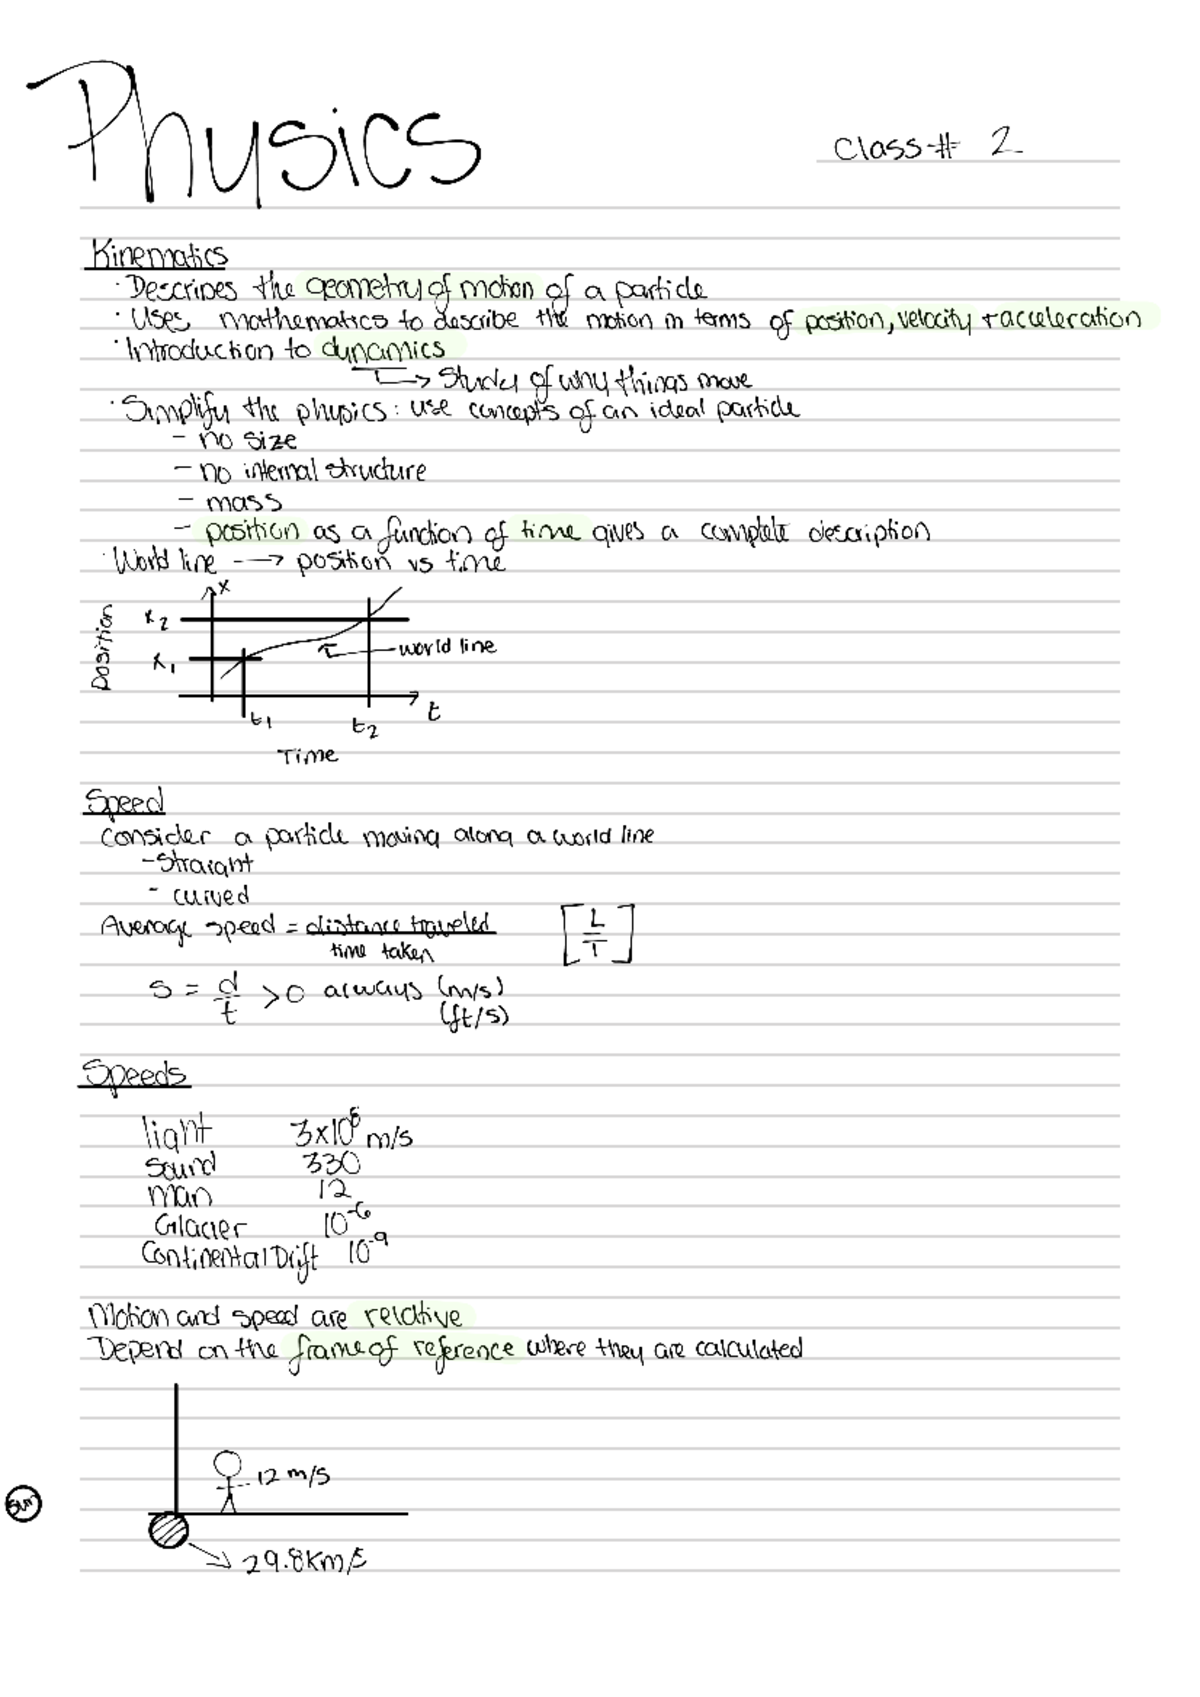 Physics
Class # 2
Kinematics
· Describes the geometry of motion of a particle
· Uses mathematics to describe the motion in terms of position, velocity + acceleration
· Introduction to dynamics
→ Study of why things move
· Simplify the physics: use concepts of an ideal particle
- no size
- no internal structure
- mass
- position as a function of time gives a complete description
· World line --→ position vs time
x
Position
x₂
x₁
world line
t₁
t₂
t
Time
Speed
Consider a particle moving along a world line
- Straight
- curved
Average speed = distance traveled / time taken [L/T]
s = d/t >0 always (m/s)
(ft/s)
Speeds
light 3x10⁸ m/s
Sound 330
man 12
Glacier 10⁻⁶
Continental Drift 10⁻⁹
Motion and speed are relative
Depend on the frame of reference where they are calculated
12 m/s
Sun
→ 29.8 Km/s